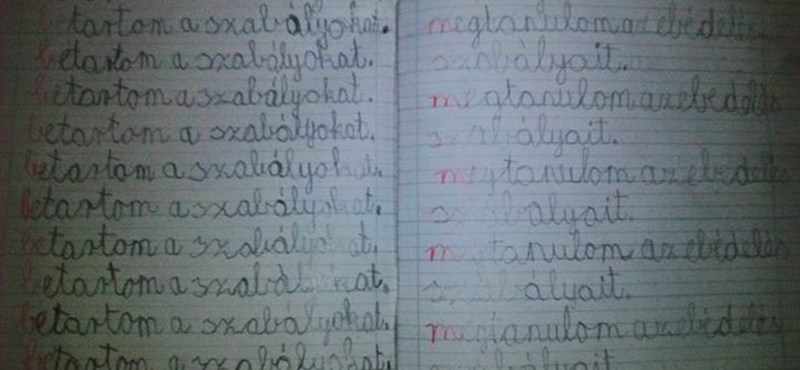 betartom a szabályokat.
betartom a szabályokat.
betartom a szabályokat.
betartom a szabályokat.
betartom a szabályokat.
betartom a szabályokat.
betartom a szabályokat.
betartom a szabályokat.
betartom a szabályokat.
betartom a szabályokat.
megtanulom az ebédelés
szabályait.
megtanulom az ebédelés
szabályait.
megtanulom az ebédelés
szabályait.
megtanulom az ebédelés
szabályait.
megtanulom az ebédelés
szabályait.